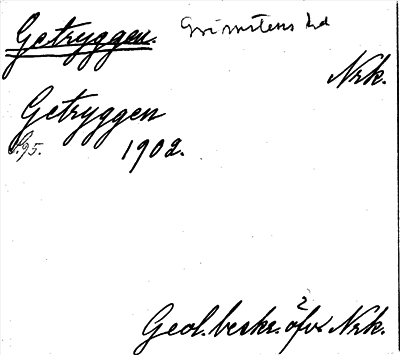 Getryggen. Grimstens hd
Nrk.
Getryggen
s.95. 1902.
Geol. beskr. öfv Nrk.